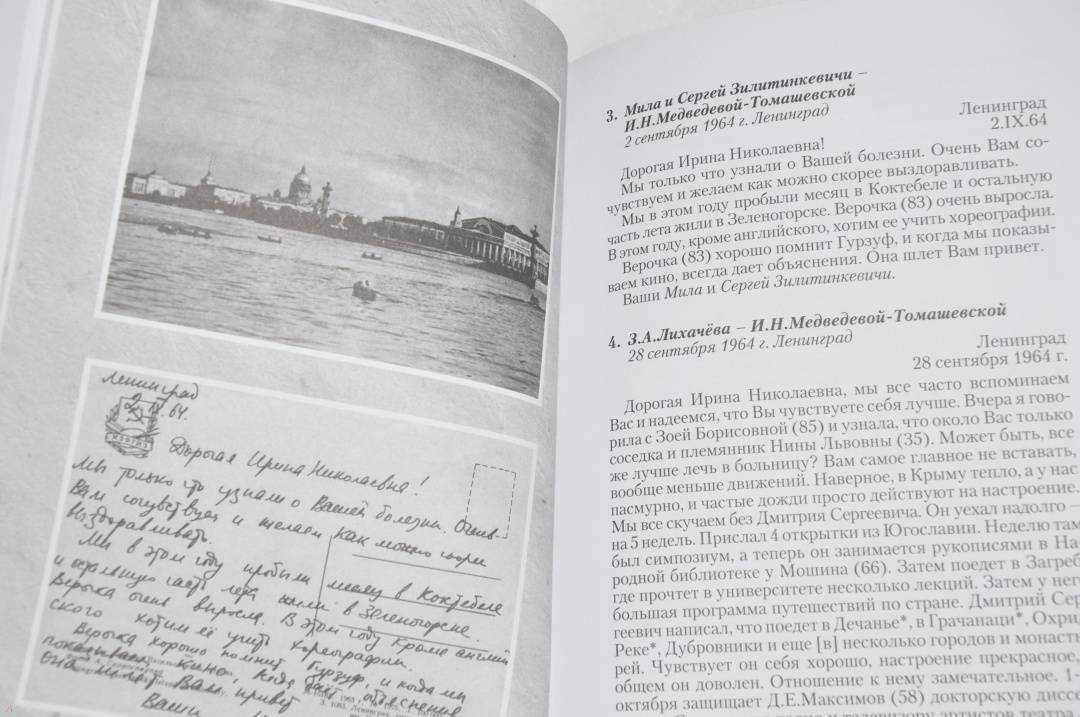 Ленинград
2.IX.64.
Дорогая Ирина Николаевна!
Мы только что узнали о Вашей болезни. Очень
Вам сочувствуем и желаем как можно скорее
выздоравливать.
Мы в этом году пробыли месяц в Коктебеле
и остальную часть лета жили в Зеленогорске.
Верочка очень выросла. В этом году кроме англий-
ского хотим её учить хореографии.
Верочка хорошо помнит Гурзуф, и когда мы
показываем кино, всегда даёт объяснения
Она шлет Вам привет
Ваши
3. Мила и Сергей Зилитинкевичи –
И.Н.Медведевой-Томашевской
2 сентября 1964 г. Ленинград
Ленинград
2.IX.64
Дорогая Ирина Николаевна!
Мы только что узнали о Вашей болезни. Очень Вам со-
чувствуем и желаем как можно скорее выздоравливать.
Мы в этом году пробыли месяц в Коктебеле и остальную
часть лета жили в Зеленогорске. Верочка (83) очень выросла.
В этом году, кроме английского, хотим ее учить хореографии.
Верочка (83) хорошо помнит Гурзуф, и когда мы показы-
ваем кино, всегда дает объяснения. Она шлет Вам привет.
Ваши Мила и Сергей Зилитинкевичи.
4. З.А.Лихачёва – И.Н.Медведевой-Томашевской
28 сентября 1964 г. Ленинград
Ленинград
28 сентября 1964 г.
Дорогая Ирина Николаевна, мы все часто вспоминаем
Вас и надеемся, что Вы чувствуете себя лучше. Вчера я гово-
рила с Зоей Борисовной (85) и узнала, что около Вас только
соседка и племянник Нины Львовны (35). Может быть, все
же лучше лечь в больницу? Вам самое главное не вставать,
вообще меньше движений. Наверное, в Крыму тепло, а у нас
пасмурно, и частые дожди просто действуют на настроение.
Мы все скучаем без Дмитрия Сергеевича. Он уехал надолго –
на 5 недель. Прислал 4 открытки из Югославии. Неделю там
был симпозиум, а теперь он занимается рукописями в На-
родной библиотеке у Мошина (66). Затем поедет в Загреб
где прочтет в университете несколько лекций. Затем у нег
большая программа путешествий по стране. Дмитрий Сер
геевич написал, что поедет в Дечанье*, в Грачанаци*, Охрид
Реке*, Дубровники и еще [в] несколько городов и монасты
рей. Чувствует он себя хорошо, настроение прекрасное,
общем он доволен. Отношение к нему замечательное. 1-
октября защищает Д.Е.Максимов (58) докторскую диссе
телевизору артистов театра